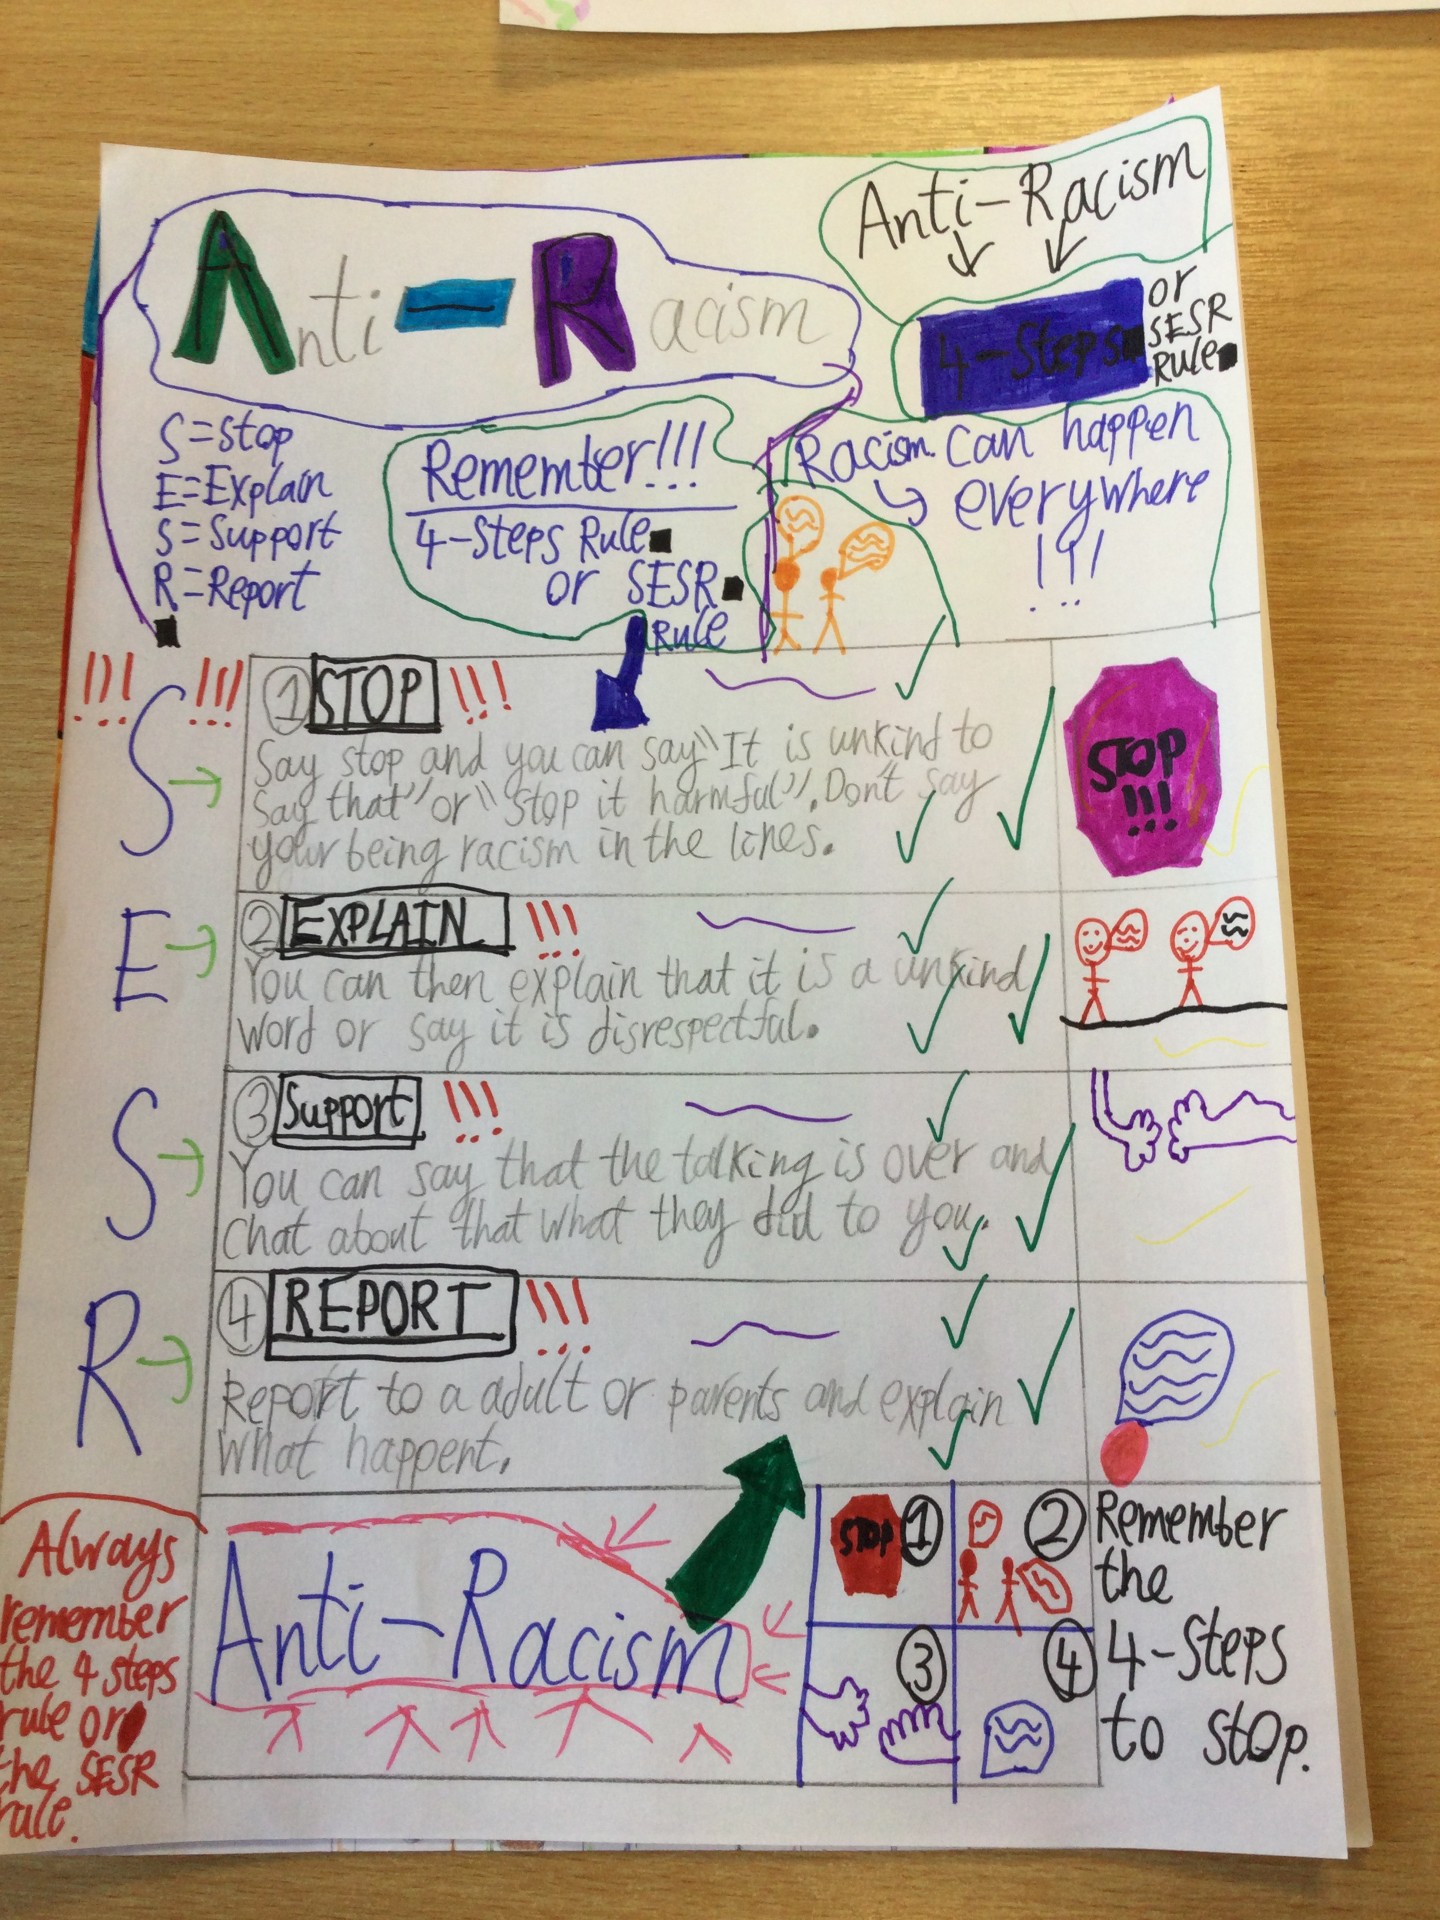 Anti-Racism
Anti-Racism
4-Steps
or
SESR
Rule
S=Stop
E=Explain
S=Support
R=Report
Remember!!!
4-Steps Rule
or SESR
Rule
Racism can happen
everywhere
!!!
!!! !!!
S
① STOP !!!
Say stop and you can say "It is unkind to
say that" or "Stop it harmful". Don't say
your being racism in the lines.
STOP
!!!
E
② EXPLAIN !!!
You can then explain that it is a unkind
word or say it is disrespectful.
S
③ Support !!!
You can say that the talking is over and
chat about that what they did to you.
R
④ REPORT !!!
Report to a adult or parents and explain
what happent.
Always
remember
the 4 steps
rule or
the SESR
rule.
Anti-Racism
STOP ①
②
③
④
Remember
the
4-Steps
to stop.